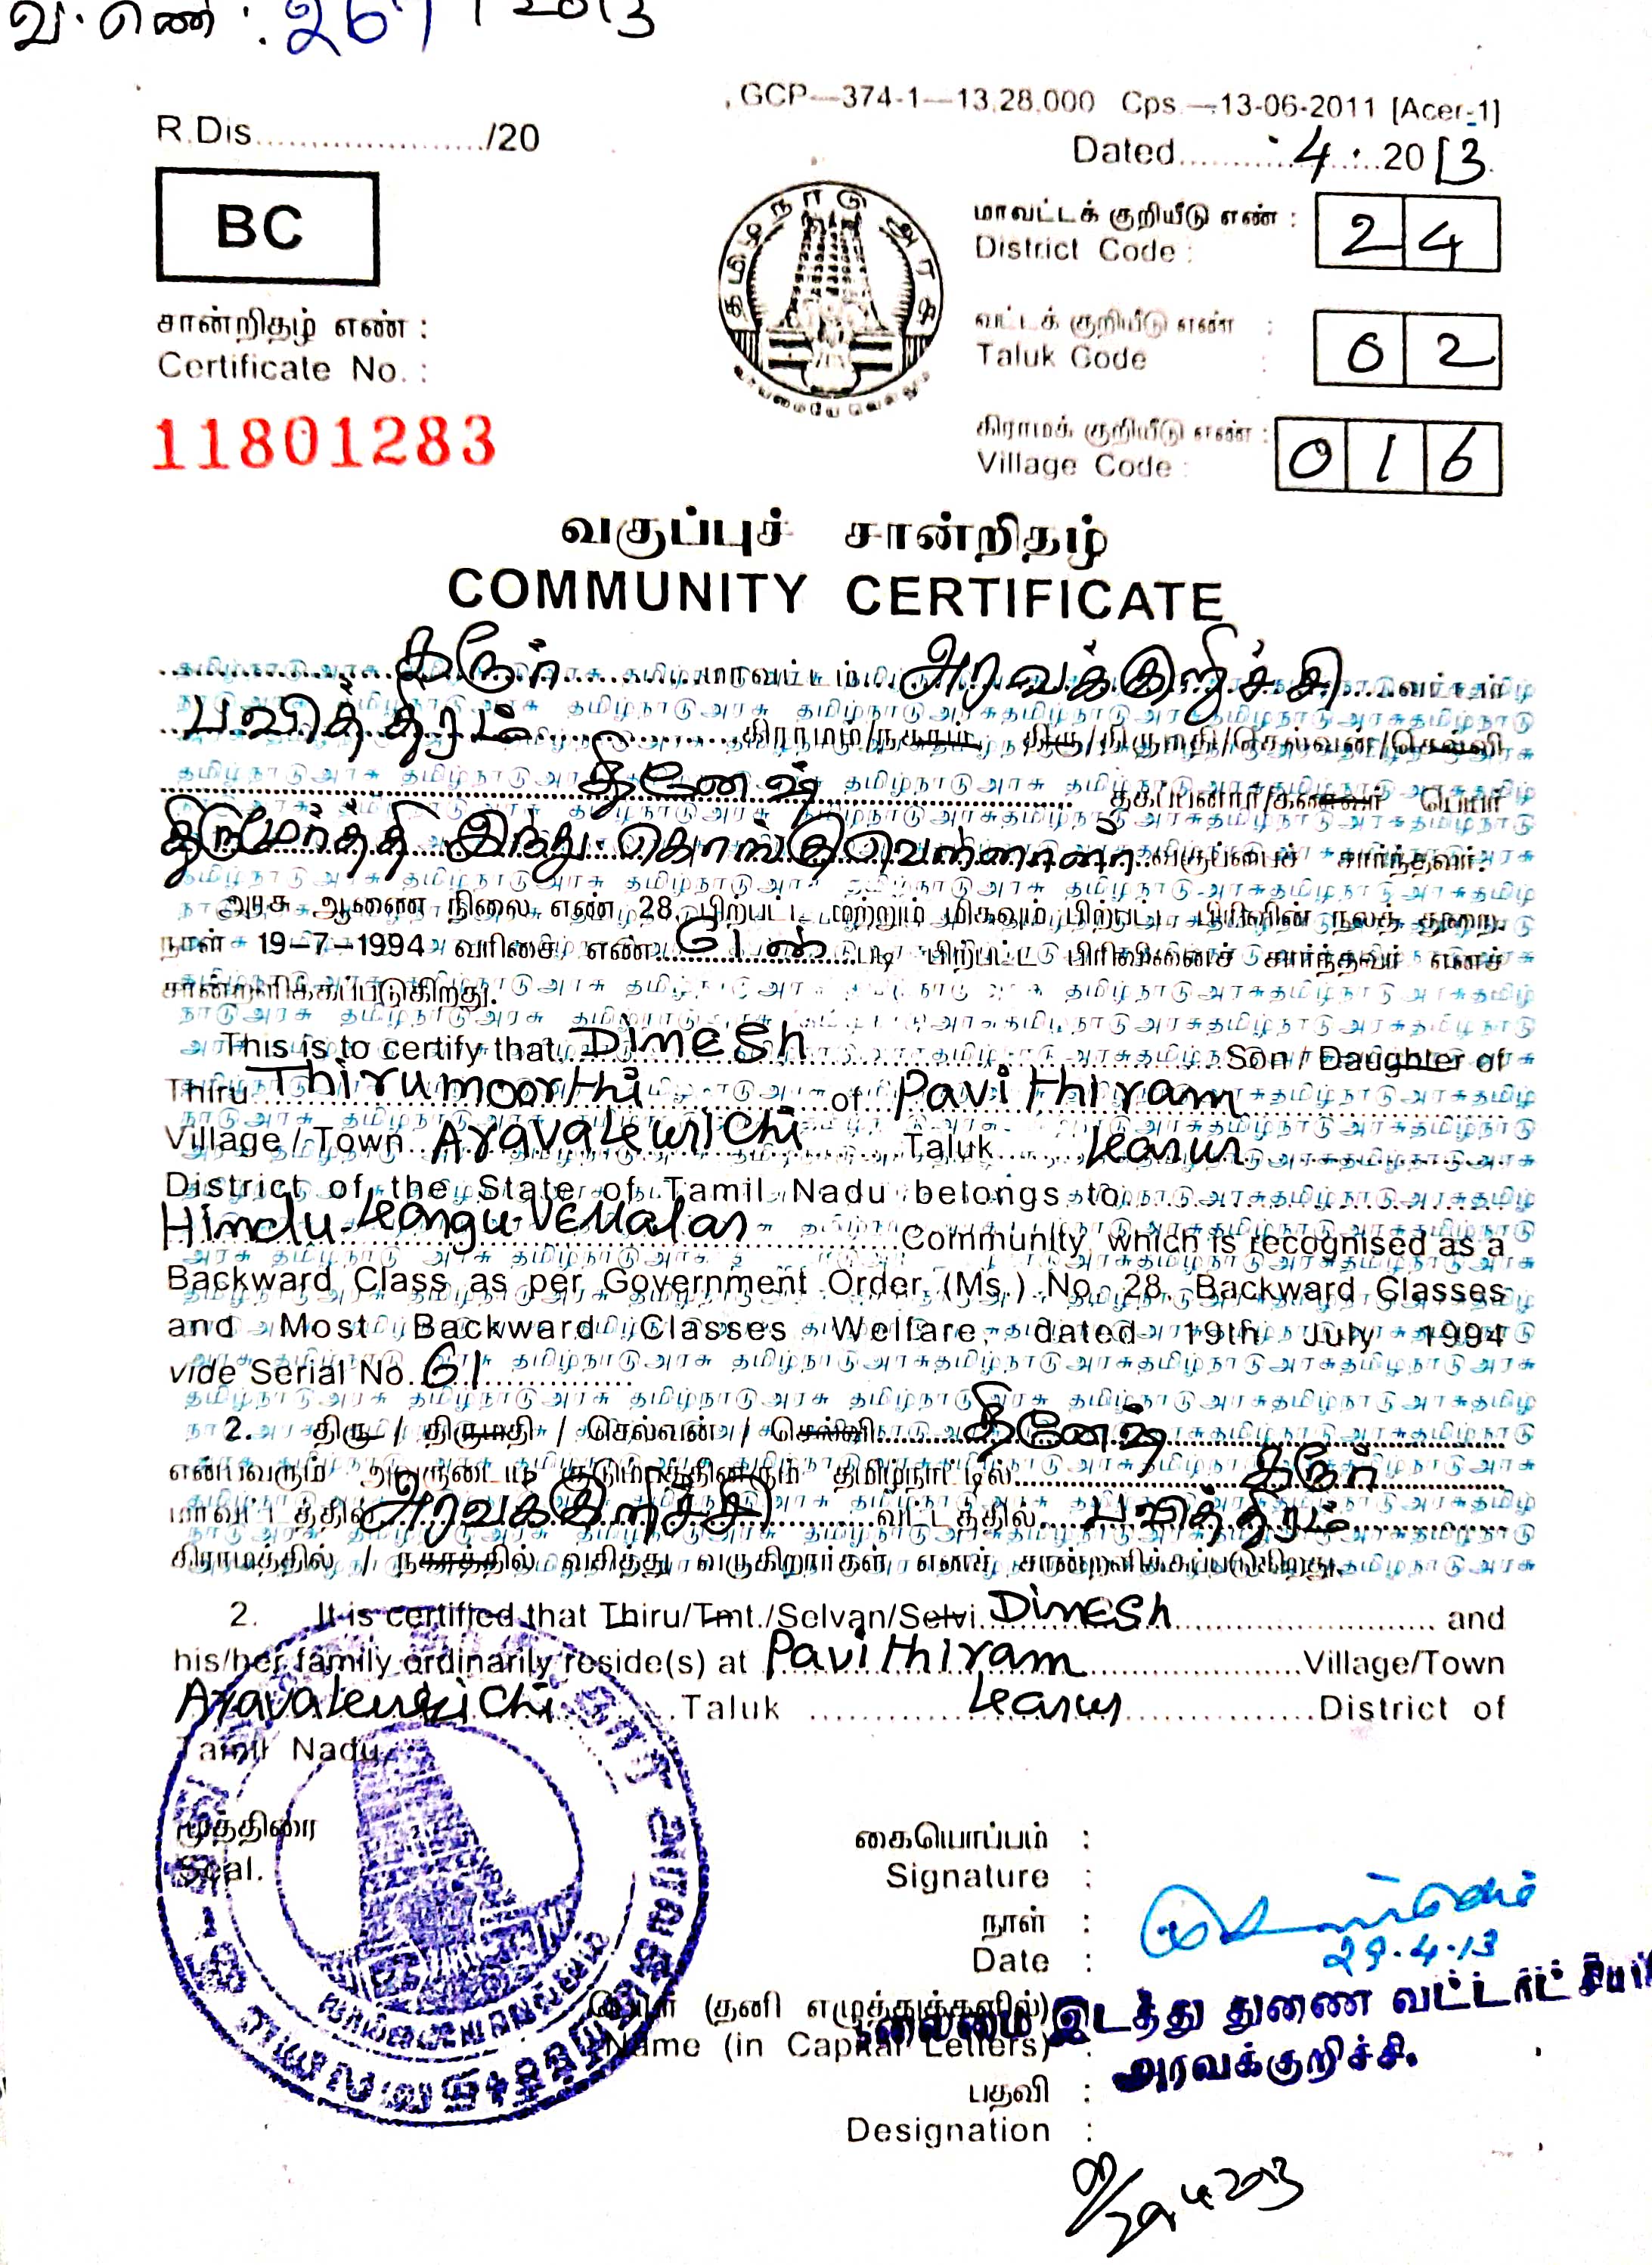 வ. எண் : 267 / 2013
GCP—374-1—13,28,000 Cps.—13-06-2011 [Acer-1]
R.Dis....................../20
Dated.........-4-.....2013.
BC
தமிழ்நாடு அரசு
வாய்மையே வெல்லும்
மாவட்டக் குறியீடு எண் : 24
District Code :
சான்றிதழ் எண் :
Certificate No. :
வட்டக் குறியீடு எண் : 02
Taluk Code :
11801283
கிராமக் குறியீடு எண் : 016
Village Code :
வகுப்புச் சான்றிதழ்
COMMUNITY CERTIFICATE
கரூர் மாவட்டம் அரவக்குறிச்சி வட்டம்
பவித்திரம் கிராமம்/நகரம் திரு/திருமதி/செல்வன்/செல்வி
தினேஷ் தகப்பனார்/கணவர் பெயர்
திருமூர்த்தி இந்து-கொங்குவெள்ளாளர் வகுப்பைச் சார்ந்தவர்.
அரசு ஆணை நிலை எண் 28, பிற்பட்ட மற்றும் மிகவும் பிற்பட்ட பிரிவினர் நலத் துறை,
நாள் 19-7-1994 வரிசை எண் 61-ன் படி பிற்பட்ட பிரிவினைச் சார்ந்தவர் எனச்
சான்றளிக்கப்படுகிறது.
This is to certify that Dinesh Son / Daughter of
Thiru Thirumoorthi of Pavithiram
Village / Town Aravakurichi Taluk Karur
District of the State of Tamil Nadu belongs to
Hindu-Kongu-Vellalar Community which is recognised as a
Backward Class as per Government Order (Ms.) No. 28, Backward Classes
and Most Backward Classes Welfare, dated 19th July 1994
vide Serial No. 61
2. திரு / திருமதி / செல்வன் / செல்வி தினேஷ்
என்பவரும் அவருடைய குடும்பத்தினரும் தமிழ்நாட்டில் கரூர்
மாவட்டத்தில் அரவக்குறிச்சி வட்டத்தில் பவித்திரம்
கிராமத்தில் / நகரத்தில் வசித்து வருகிறார்கள் எனச் சான்றளிக்கப்படுகிறது.
2. It is certified that Thiru/Tmt./Selvan/Selvi Dinesh and
his/her family ordinarily reside(s) at Pavithiram Village/Town
Aravakurichi Taluk Karur District of
Tamil Nadu.
முத்திரை
Seal.
கையொப்பம் :
Signature :
நாள் :
Date : 29.4.13
பெயர் (தனி எழுத்துக்களில்)
Name (in Capital Letters) :
தலைமை இடத்து துணை வட்டாட்சியர்
அரவக்குறிச்சி.
பதவி :
Designation :
29/4/2013